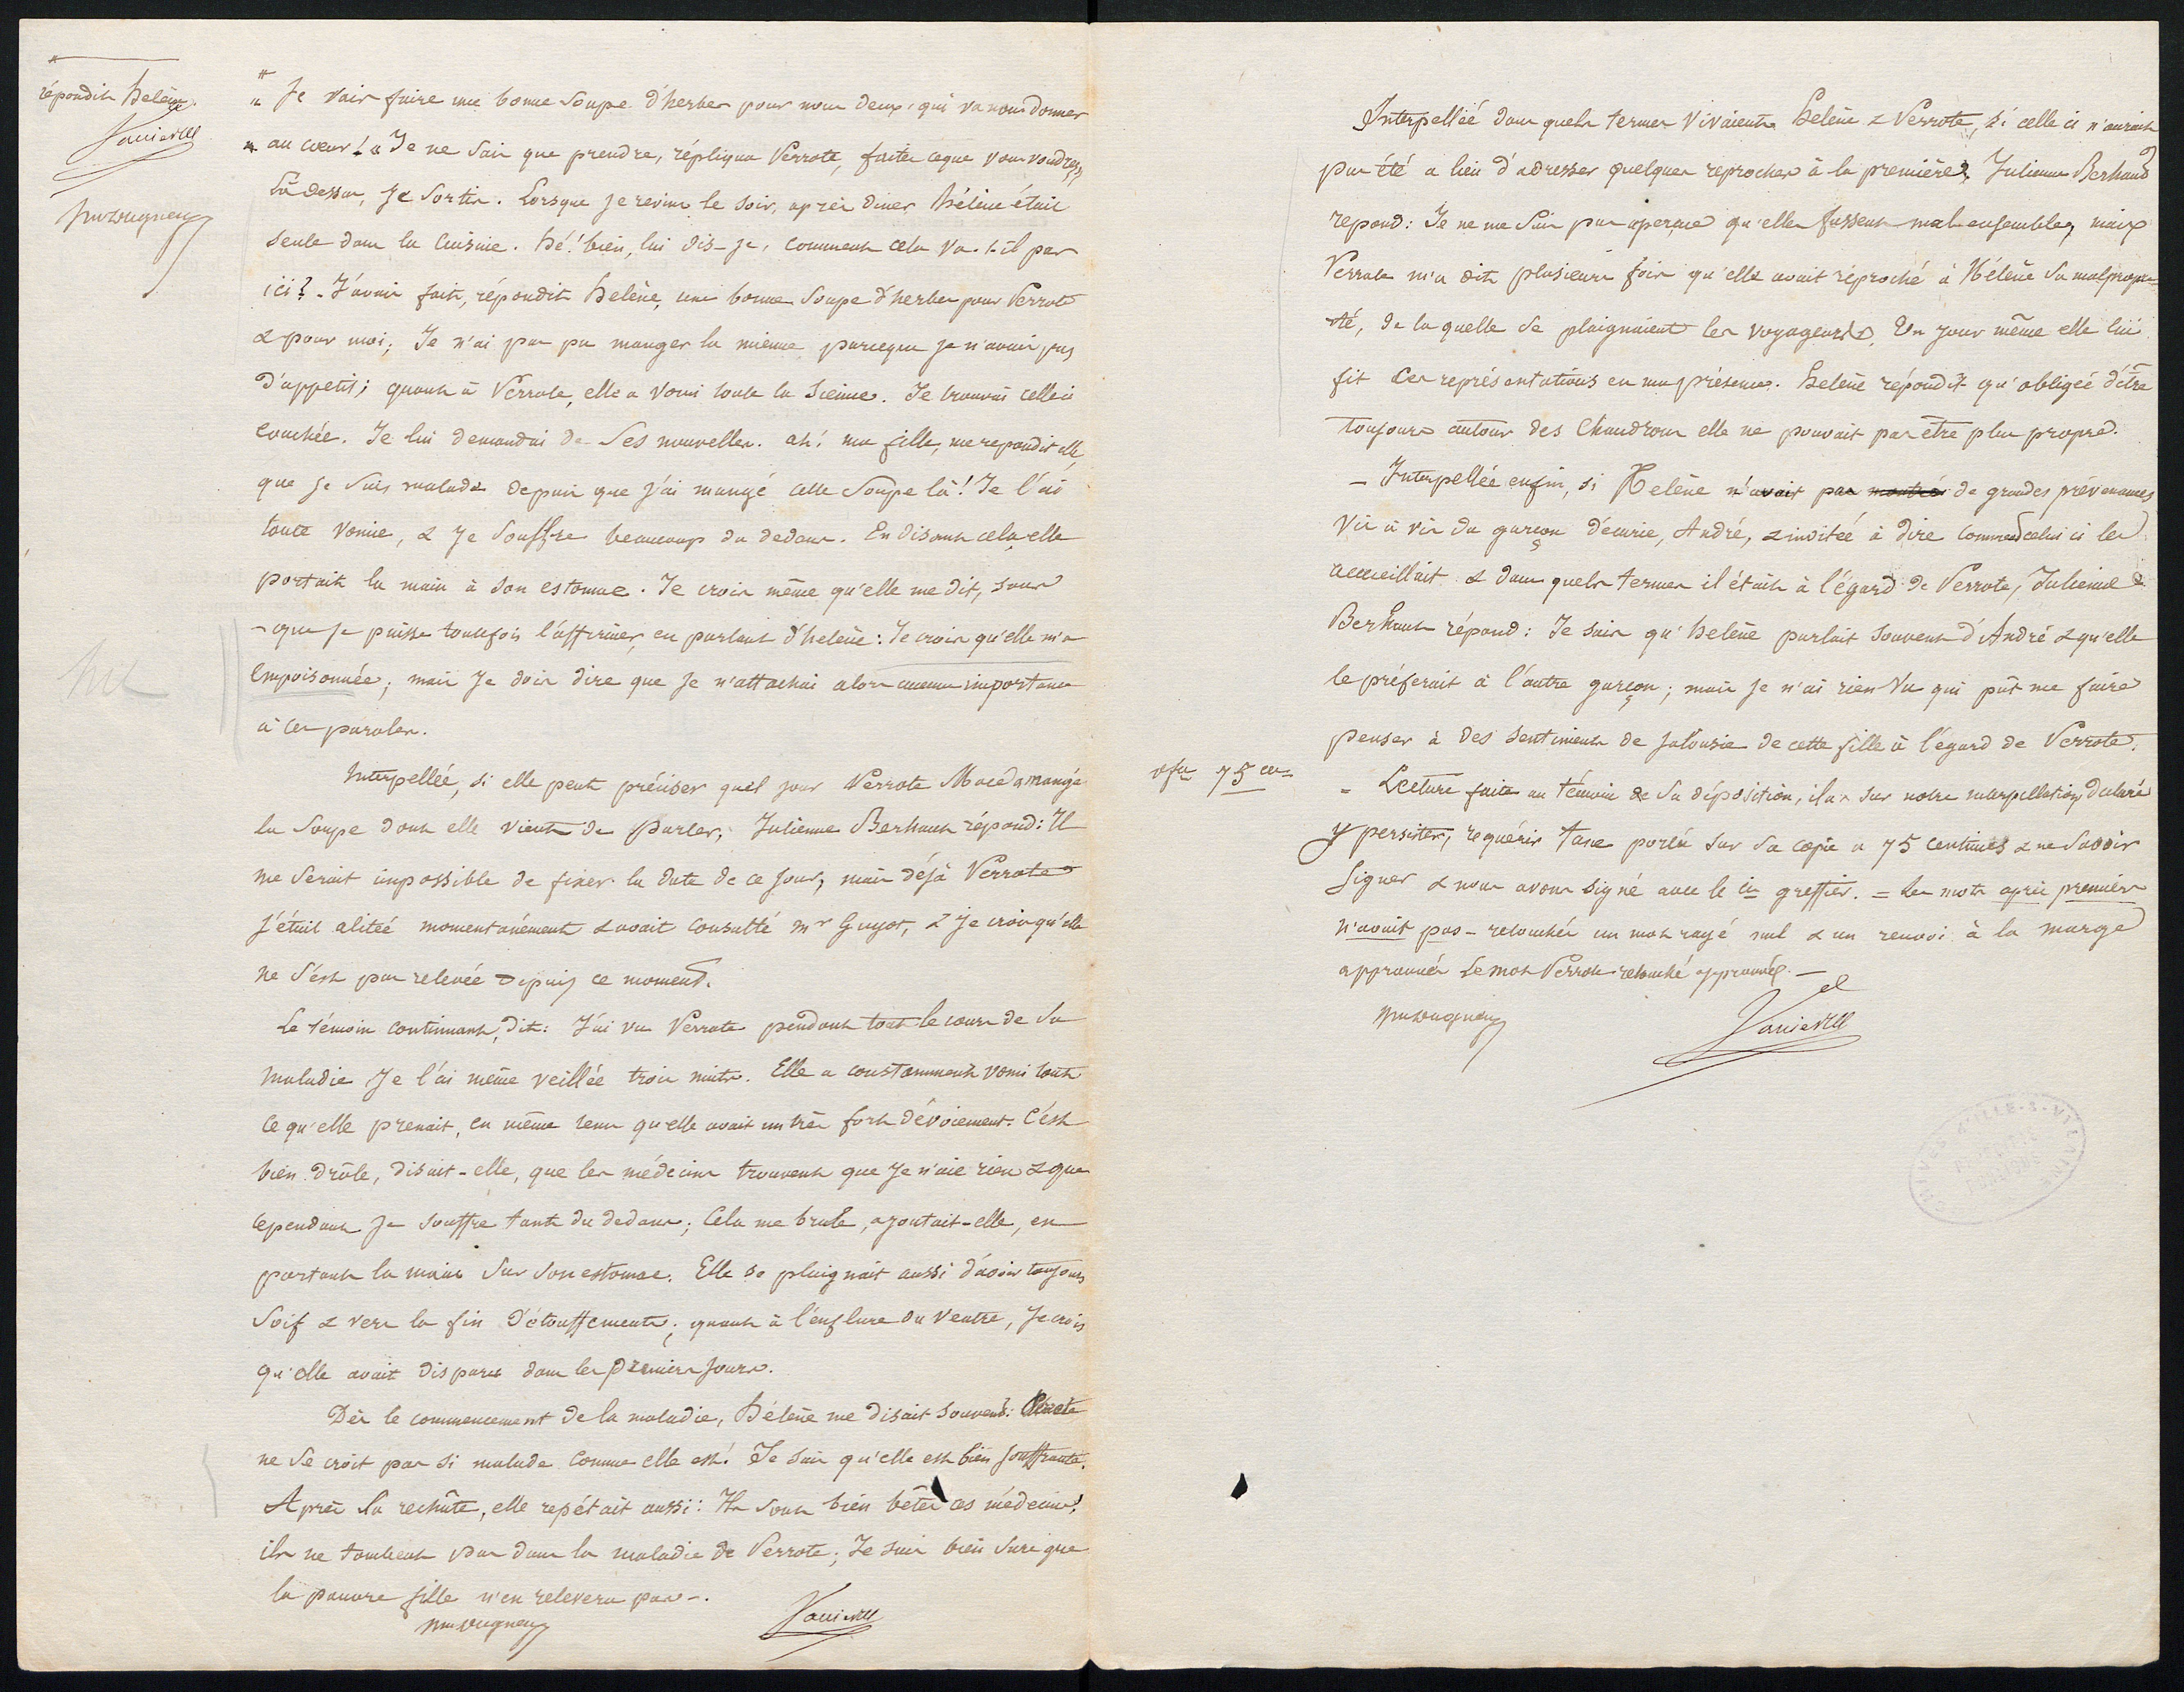 répondit helène.
" Je vais faire une bonne Soupe d'herbes pour nous deux, qui va nous donner
" au cœur! " Je ne Sais que prendre, répliqua Perrote, faites ceque vous voudrez,
Là dessus, Je Sortis. Lorsque je revins le soir, après diner, hélène était
seule dans la Cuisine. hé! bien, lui dis-je, comment cela va-t-il par
ici? - J'avais fait, répondit helène, une bonne Soupe d'herbes pour Perrote
& pour moi; Je n'ai pas pu manger la mienne parceque je n'avais pas
d'appetit; quant à Perrote, elle a vomi toute la Sienne. Je trouvai celle ci
couchée. Je lui demandai de Ses nouvelles. ah! ma fille, me repondit elle,
que je Suis malade depuis que j'ai mangé cette Soupe là! Je l'ai
toute vomie, & je Souffre beaucoup du dedans. En disant cela, elle
portait la main à son estomac. Je crois même qu'elle me dit, sans
que je puisse toutefois l'affirmer, en parlant d'helène: Je crois qu'elle m'a
Empoisonnée; mais Je dois dire que Je n'attachai alors aucune importance
à ces paroles.
Interpellée, si elle peut préciser quel jour Perrote Macé a mangé
la Soupe dont elle vient de parler, Julienne Berhault répond: Il
me Serait impossible de fixer la date de ce jour, mais déjà Perrote
s'était alitée momentanément & avait consulté mr Guyot, & je crois qu'elle
ne s'est pas relevée depuis ce moment.
Le témoin continuant, dit: J'ai vu Perrote pendant tout le cours de Sa
maladie Je l'ai même veillée trois nuits. Elle a constamment vomi tout
ce qu'elle prenait, en même tems qu'elle avait un très fort dévoiement. C'est
bien drôle, disait-elle, que les médecins trouvent que je n'aie rien & que
cependant je souffre tant du dedans; Cela me brule, ajoutait-elle, en
portant la main Sur Son estomac. Elle se plaignait aussi d'avoir toujours
Soif & vers la fin d'étouffements; quant à l'enflure du ventre, Je crois
qu'elle avait disparu dans les premiers jours.
Dès le commencement de la maladie, hélène me disait souvent: Perrote
ne Se croit pas si malade comme elle est! Je sais qu'elle est bien souffrante.
Après Sa rechûte, elle repétait aussi: Ils sont bien bêtes ces médecins!
ils ne tombent pas dans la maladie de Perrote; Je suis bien Sure que
la pauvre fille n'en relevera pas -.
Interpellée dans quels termes vivaient helène & Perrote, si celle ci n'aurait
pas été a lieu d'adresser quelques reproches à la première, Julienne Berhault
répond: Je ne me Suis pas aperçue qu'elles fussent mal ensemble, mais
Perrote m'a dit plusieurs fois qu'elle avait réproché à Hélène Sa malpropre-
té, de laquelle Se plaignaient les voyageurs. Un jour même elle lui
fit Ces représentations en ma présence. helène répondit qu'obligée d'être
toujours autour des Chaudrons elle ne pouvait pas être plus propre.
- Interpellée enfin, si helène n'avait pas montré de grandes prévenances
vis à vis du garçon d'écurie, André, & invitée à dire comment celui ci les
accueillait & dans quels termes il était à l'égard de Perrote, Julienne
Berhault répond: Je sais qu'helène parlait Souvent d'André & qu'elle
le préférait à l'autre garçon; mais je n'ai rien Vu qui pût me faire
penser à des Sentiments de jalousie de cette fille à l'égard de Perrote.
75 ces
- Lecture faite au témoin de Sa déposition, il a Sur notre interpellation, declaré
y persister, requéris taxe portée sur Sa copie a 75 centimes & ne Savoir
Signer & nous avons Signé avec le cis greffier. = les mots après premiers
n'avait pas - retouchés un mot rayé nul & un renvoi à la marge
approuvés Le mot Perrote retouché approuvé. -